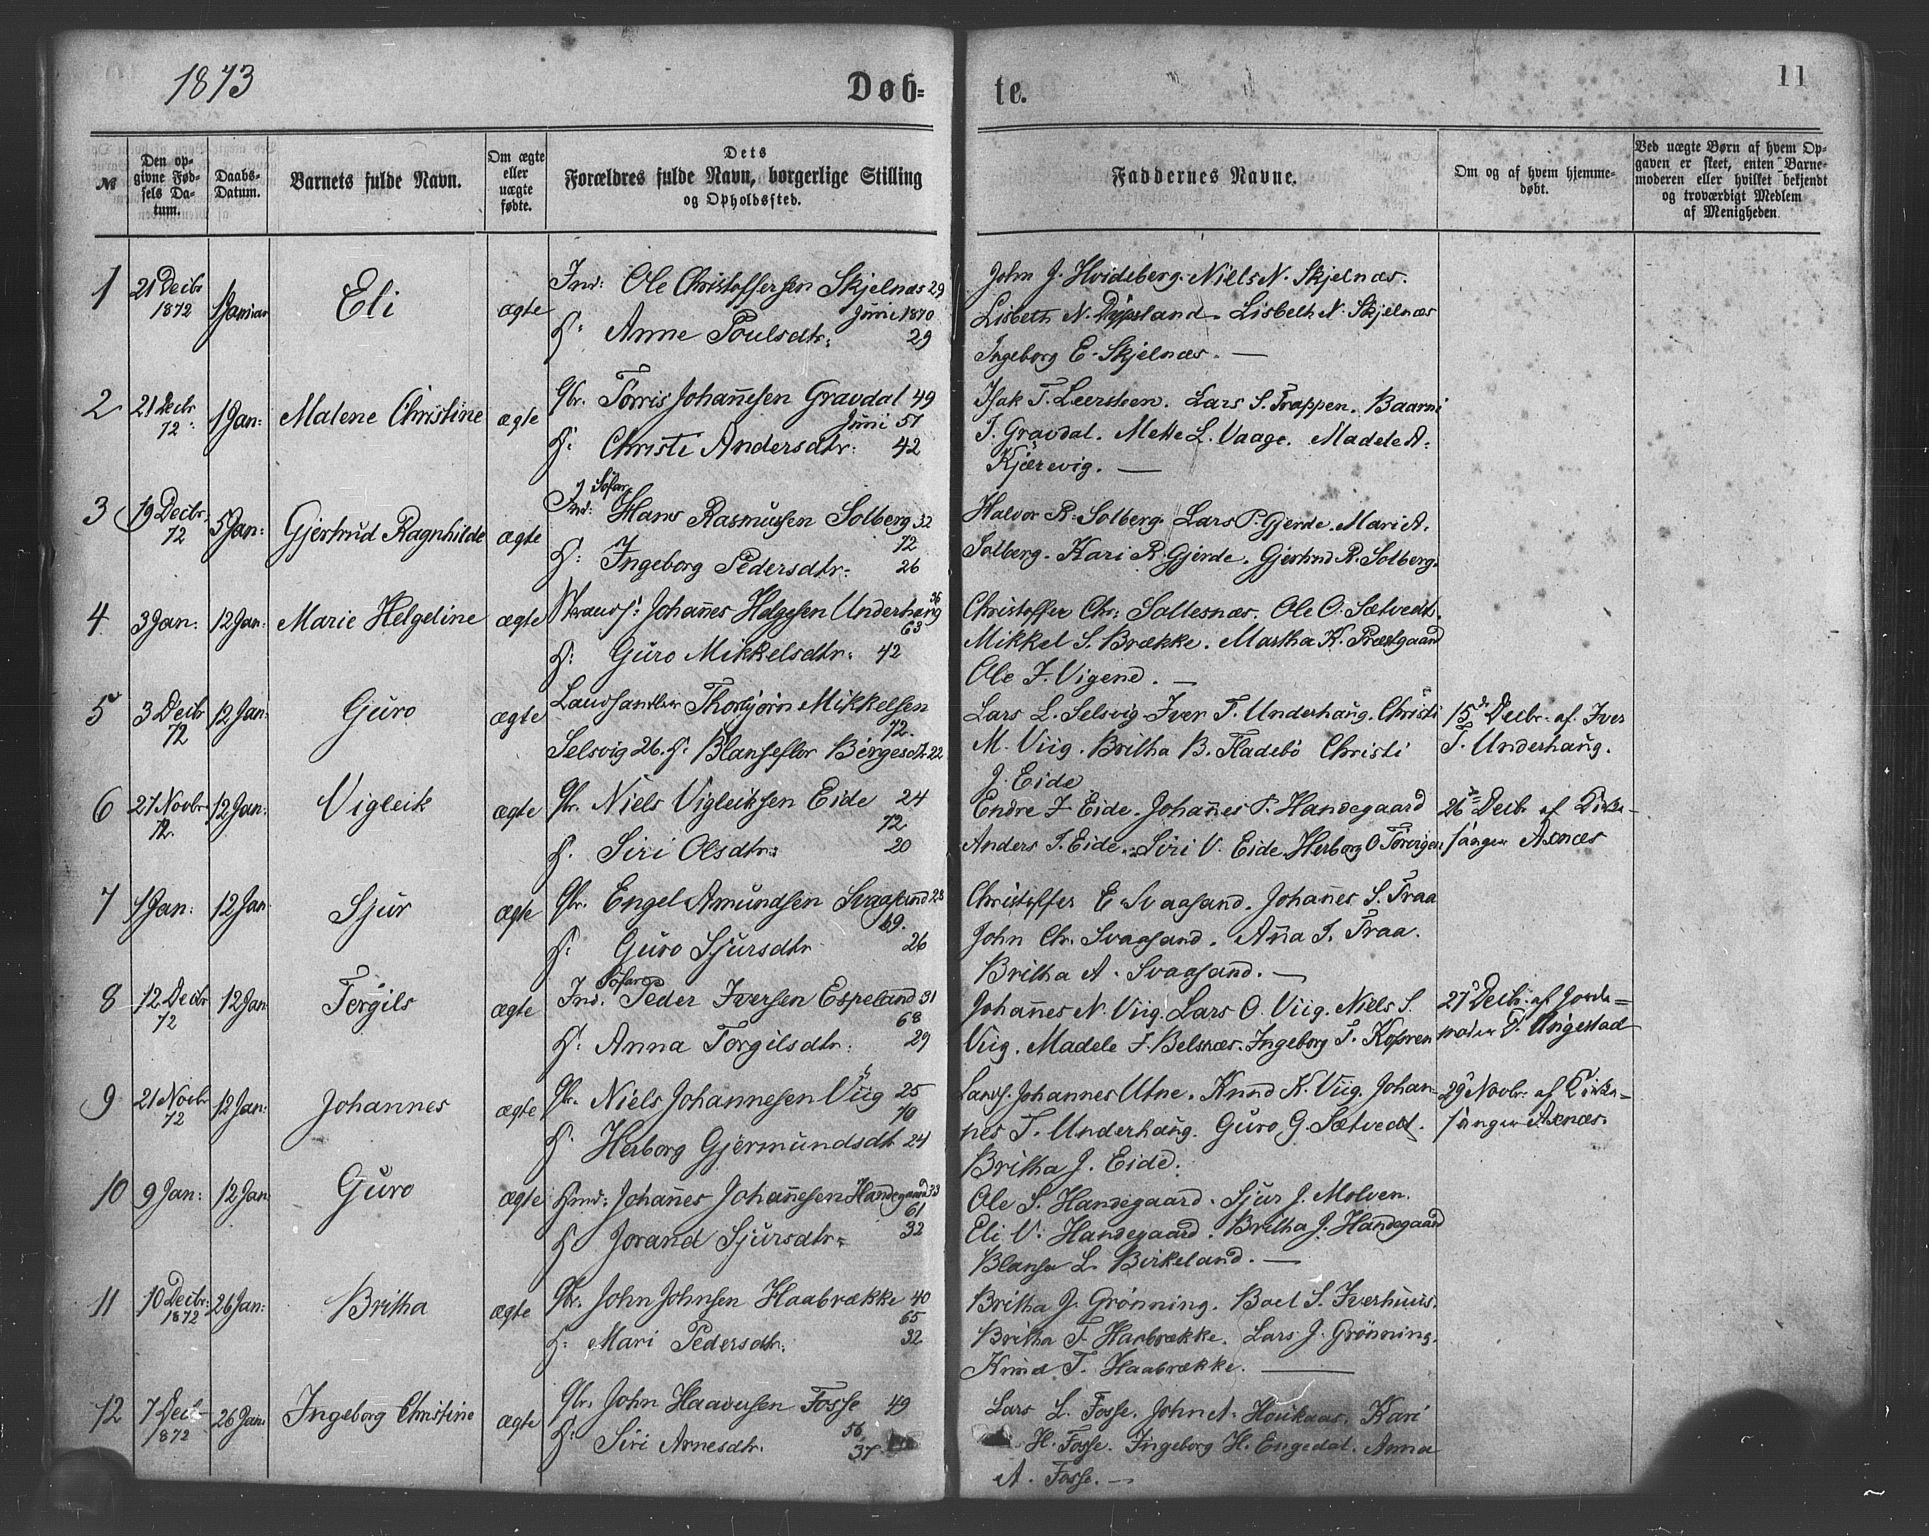 1873
Døb-
te.
11
№
Den op-
givne Fød-
sels Da-
tum.
Daabs-
Datum.
Barnets fulde Navn.
Om ægte
eller
uægte
fødte.
Dets
Forældres fulde Navn, borgerlige Stilling
og Opholdssted.
Faddernes Navne.
Om og af hvem hjemme-
døbt.
Ved uægte Børn af hvem Op-
gaven er skeet, enten Barne-
moderen eller hvilket bekjendt
og troværdigt Medlem
af Menigheden.
1
21 Decbr
1872
1 Januar
Eli
ægte
Ind: Ole Christoffersen Skjelnæs 29
Juni 1870
H: Anne Poulsdtr: 29
John J. Hvideberg. Niels N. Skjelnæs.
Lisbeth N. Dypsland. Lisbeth N. Skjelnæs
Ingeborg E. Skjelnæs. —
2
21 Decbr
72
1 Jan:
Malene Christine
ægte
Gbr. Tørris Johannesen Gravdal 49
Juni 51
H: Christi Andersdtr: 42
Isak T. Leersteen. Lars S. Trappen. Baarni
T. Gravdal. Mette L. Vaage. Madele A.
Kjærevig. —
3
19 Decbr.
72
5 Jan:
Gjertrud Ragnhilde
ægte
Ind: Søfar. Hans Rasmussen Solberg 32
72
H: Ingeborg Pedersdtr: 26
Halvor R. Solberg. Lars P. Gjerde. Mari A.
Solberg. Kari R. Gjerde. Gjertrud R. Solberg.
4
3 Jan:
12 Jan:
Marie Helgeline
ægte
Strands: Johannes Helgesen Underhaug 36
63
H: Guro Mikkelsdtr: 42
Christoffer Chr: Saltesnæs. Ole O. Sætvedt.
Mikkel S. Brække. Martha K. Præstgaard
Ole J. Vigene. —
5
3 Decbr
72
12 Jan:
Guro
ægte
Landhandler Thorbjørn Mikkelsen
72.
Selsvig 26. H: Blanseflor Børgesdt. 22
Lars L. Selsvig. Iver T. Underhaug. Christi
M. Viig. Britha B. Fladebö Christi
J. Eide
15d Decbr. af Iver
T. Underhaug.
6
27 Novbr
72.
12 Jan:
Vigleik
ægte
Gbr. Niels Vigleiksen Eide 24
72.
H. Siri Olsdtr: 20
Endre I. Eide. Johannes P. Handegaard
Anders I. Eide. Siri V. Eide. Herborg O Tørvigen
26de Decbr. af Kirke-
sanger Axnæs
7
1 Jan:
12 Jan
Sjur
ægte
Gbr. Engel Amundsen Svaasand 28
69.
H: Guro Sjursdtr 26
Christoffer E. Svaasand. Johannes S. Traa
John Chr. Svaasand. Anna I. Traa.
Britha A. Svaasand. —
8
12 Decbr
72
12 Jan
Tergils
ægte
Ind. Søfar. Peder Iversen Espeland 31
68
H: Anna Torgilsdtr: 29
Johannes N. Viig. Lars O. Viig. Niels S.
Viig. Madele J. Belsnæs. Ingeborg T. Kofsren
27d Decbr. af Jorde-
moder T. Ungestad
9
21 Novbr
72
12 Jan:
Johannes
ægte
Gbr. Niels Johannesen Viig 25
70
H. Herborg Gjermundsdt 24
Landh. Johannes Utne. Knud K. Viig. Johan-
nes T. Underhaug. Guro G. Sætvedt.
Britha J. Eide.
29d Novbr. af Kirke-
sanger Axnæs.
10
9 Jan:
12 Jan
Guro
ægte
Hmd: Johannes Johannesen Handegaard 33
61
H. Jorand Sjursdtr: 32
Ole S. Handegaard. Sjur J. Molven.
Eli V. Handegaard. Britha J. Handegaard
Blansa L. Birkeland. —
11
10 Decbr:
1872
26 Jan:
Britha
ægte
Gbr. John Johnsen Haabrække 40
65
H: Mari Pedersdtr: 32
Britha J. Grönning. Boel S. Iverhuus.
Britha T. Haabrække. Lars J. Grönning.
Knud T. Haabrække. —
12
7 Decb
1872
26 Jan:
Ingeborg Christine
ægte
Gbr. John Haaversen Fosse 49
56.
H: Siri Arnesdtr. 37
Lars L. Fosse. John A. Houkaas. Kari
H. Fosse. Ingeborg H. Engedal. Anna
A. Fosse. —